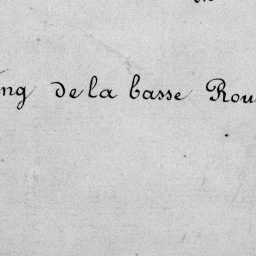 ng de la basse Rou